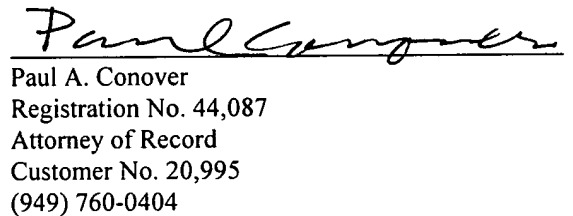 Paul Conover
Paul A. Conover
Registration No. 44,087
Attorney of Record
Customer No. 20,995
(949) 760-0404